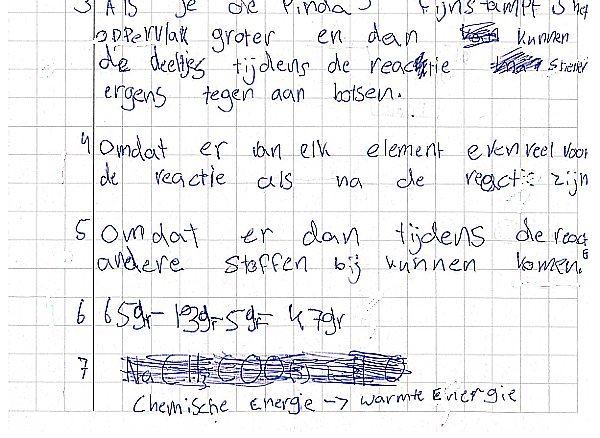 3 Als je de Pinda's fijnstampt is het
oppervlak groter en dan kunnen
de deeltjes tijdens de reactie
ergens tegen aan botsen.
4 Omdat er van elk element evenveel voor
de reactie als na de reactie zijn
5 Omdat er dan tijdens de reac
andere stoffen bij kunnen komen.
6 65gr - 13gr - 5gr = 47gr
7
Chemische Energie -> warmte Energie